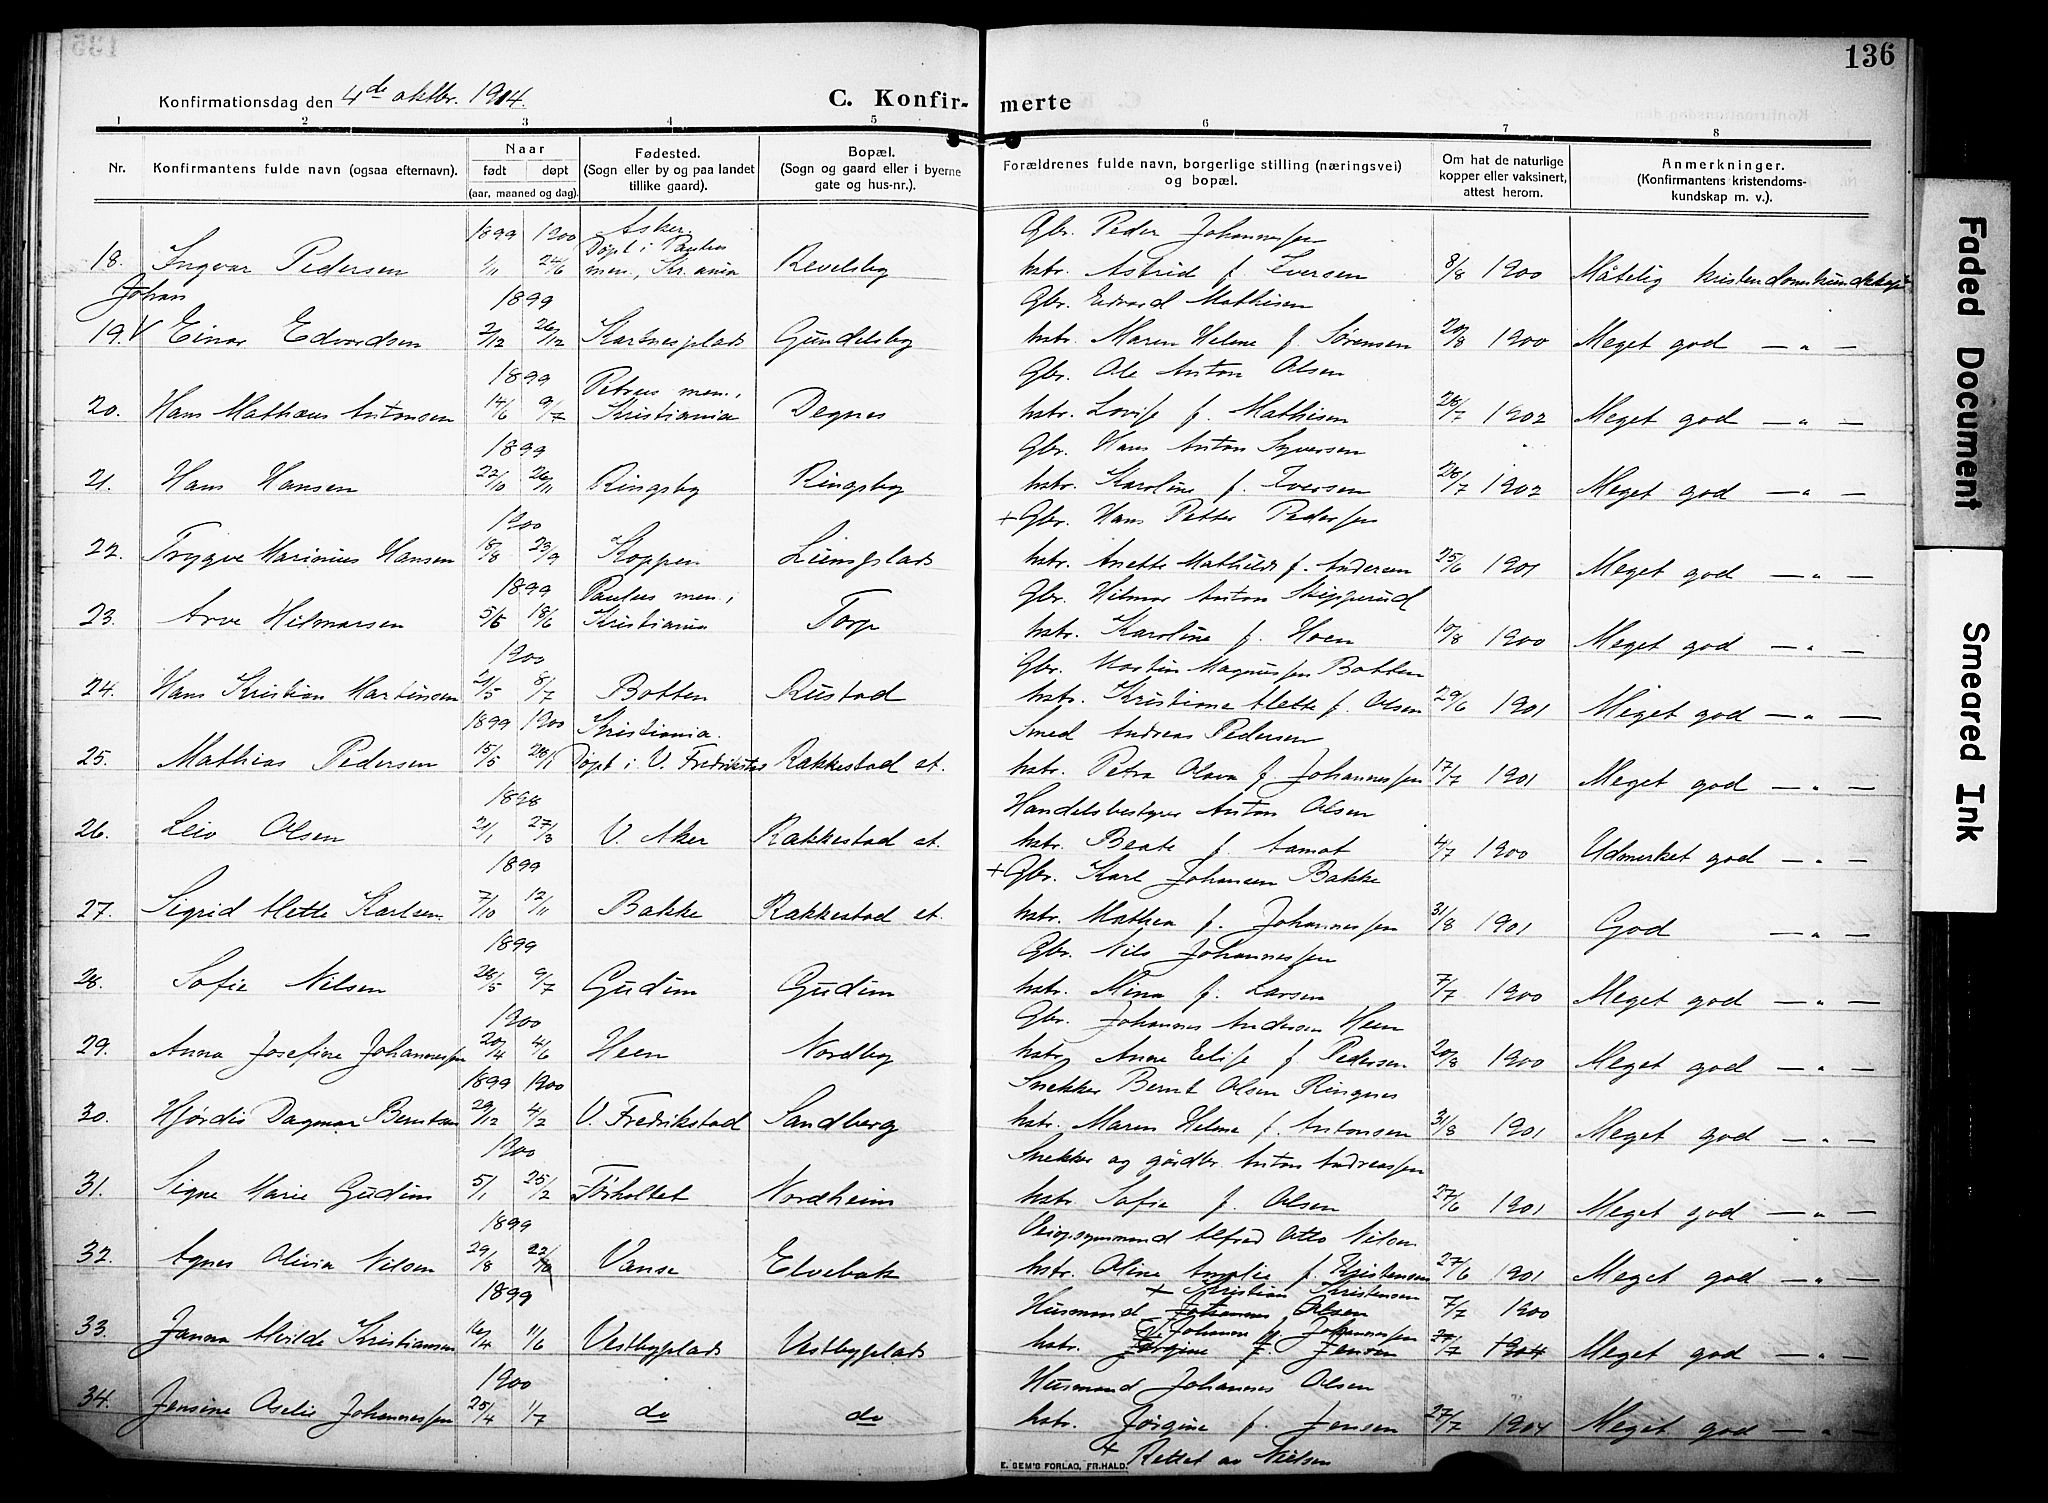 136
Konfirmationsdag den 4de oktbr. 1914.
C. Konfir- merte
1 2 3 4 5 6 7 8
Nr.
Konfirmantens fulde navn (ogsaa efternavn).
Naar
født døpt
(aar, maaned og dag).
Fødested.
(Sogn eller by og paa landet
tillike gaard).
Bopæl.
(Sogn og gaard eller i byerne
gate og hus-nr.).
Forældrenes fulde navn, borgerlige stilling (næringsvei)
og bopæl.
Om hat de naturlige
kopper eller vaksinert,
attest herom.
Anmerkninger.
(Konfirmantens kristendoms-
kundskap m. v.).
1899 1900 Asker. Gbr. Peder Johannessen
Døpt i Paulus
18. Ingvar Pedersen 1/11 24/6 men., Kr.ania Revelsby hstr. Astrid f. Iversen 8/8 1900 Måtelig kristendomskundskap
Johan 1899 Gbr. Edvard Mathisen
19. V Einar Edvardsen 2/12 26/12 Karlnesplads Gundelsby hstr. Maren Helene f. Sørensen 20/8 1900 Meget god — " —
1899 Petrus men., Gbr. Ole Anton Olsen
20. Hans Mathæus Antonsen 14/6 9/7 Kristiania Degnes hstr. Lovise f. Mathisen 28/7 1902 Meget god — " —
1899 Gbr. Hans Anton Syversen
21. Hans Hansen 22/10 26/11 Ringsby Ringsby hstr. Karoline f. Iversen 28/7 1902 Meget god — " —
1900 + Gbr. Hans Petter Pedersen
22. Trygve Marinius Hansen 18/8 23/9 Koppen Lunsplads hstr. Anette Mathilde f. Andersen 25/6 1901 Meget god — " —
1899 Paulus men., Gbr. Hilmar Anton Skipperud
23. Arve Hilmarsen 5/5 18/6 Kristiania Torp hstr. Karoline f. Hoen 10/8 1900 Meget god — " —
1900 Gbr. Martin Magnussen Botten
24. Hans Kristian Martinsen 21/5 8/7 Botten Rustad hstr. Kristiane Alette f. Olsen 29/6 1901 Meget god — " —
1899 1900 Kristiania. Smed Andreas Pedersen
25. Mathias Pedersen 15/5 28/1 Døpt i V. Fredrikstad Rakkestad st. hstr. Petra Olava f. Johannessen 17/7 1901 Meget god — " —
1898 Handelsbestyrer Anton Olsen
26. Leiv Olsen 21/1 27/3 V. Aker Rakkestad st. hstr. Beate f. Aamot 4/7 1900 Udmerket god — " —
1899 + Gbr. Karl Johansen Bakke
27. Sigrid Alette Karlsen 7/10 12/11 Bakke Rakkestad st. hstr. Mathea f. Johannessen 31/8 1901 God — " —
1899 Gbr. Nils Johannessen
28. Sofie Nilsen 28/5 9/7 Gudim Gudim hstr. Mina f. Larsen 7/7 1900 Meget god — " —
1900 Gbr. Johannes Andersen Heen
29. Anna Josefine Johannessen 20/4 4/6 Heen Nordby hstr. Anne Elise f. Pedersen 20/8 1900 Meget god — " —
1899 1900 Snekker Bernt Olsen Ringnes
30. Hjørdis Dagmar Berntsen 29/12 4/2 V. Fredrikstad Sandberg hstr. Maren Helene f. Antonsen 31/8 1901 Meget god — " —
1900 Snekker og gårdbr. Anton Andreassen
31. Signe Marie Gudim 5/1 25/2 Nordheim hstr. Sofie f. Olsen 27/6 1901 Meget god — " —
1899 Alfred Otto Nilsen
32. Agnes Olivia Nilsen 29/8 Vansø Elvebak hstr. Oline Amalie f. Kristensen 27/6 1901 Meget god — " —
1899 + Kristian Kristensen
Husmand Johannes Olsen 7/7 1900
Johanne f. Johannessen
33. Janna Alvilde Kristiansen 16/4 11/6 Vestbyplads Vestbyplads hstr. Jørgine f. Jensen 27/7 1904 Meget god — " —
1900 Husmand Johannes Olsen
34. Jensine Aselie Johannessen 25/4 1/7 do do hstr. Jørgine f. Jensen 27/7 1904 Meget god — " —
+ Rettet av Nielsen
E. SEM'S FORLAG, FR.HALD.
Faded Document
Smeared Ink